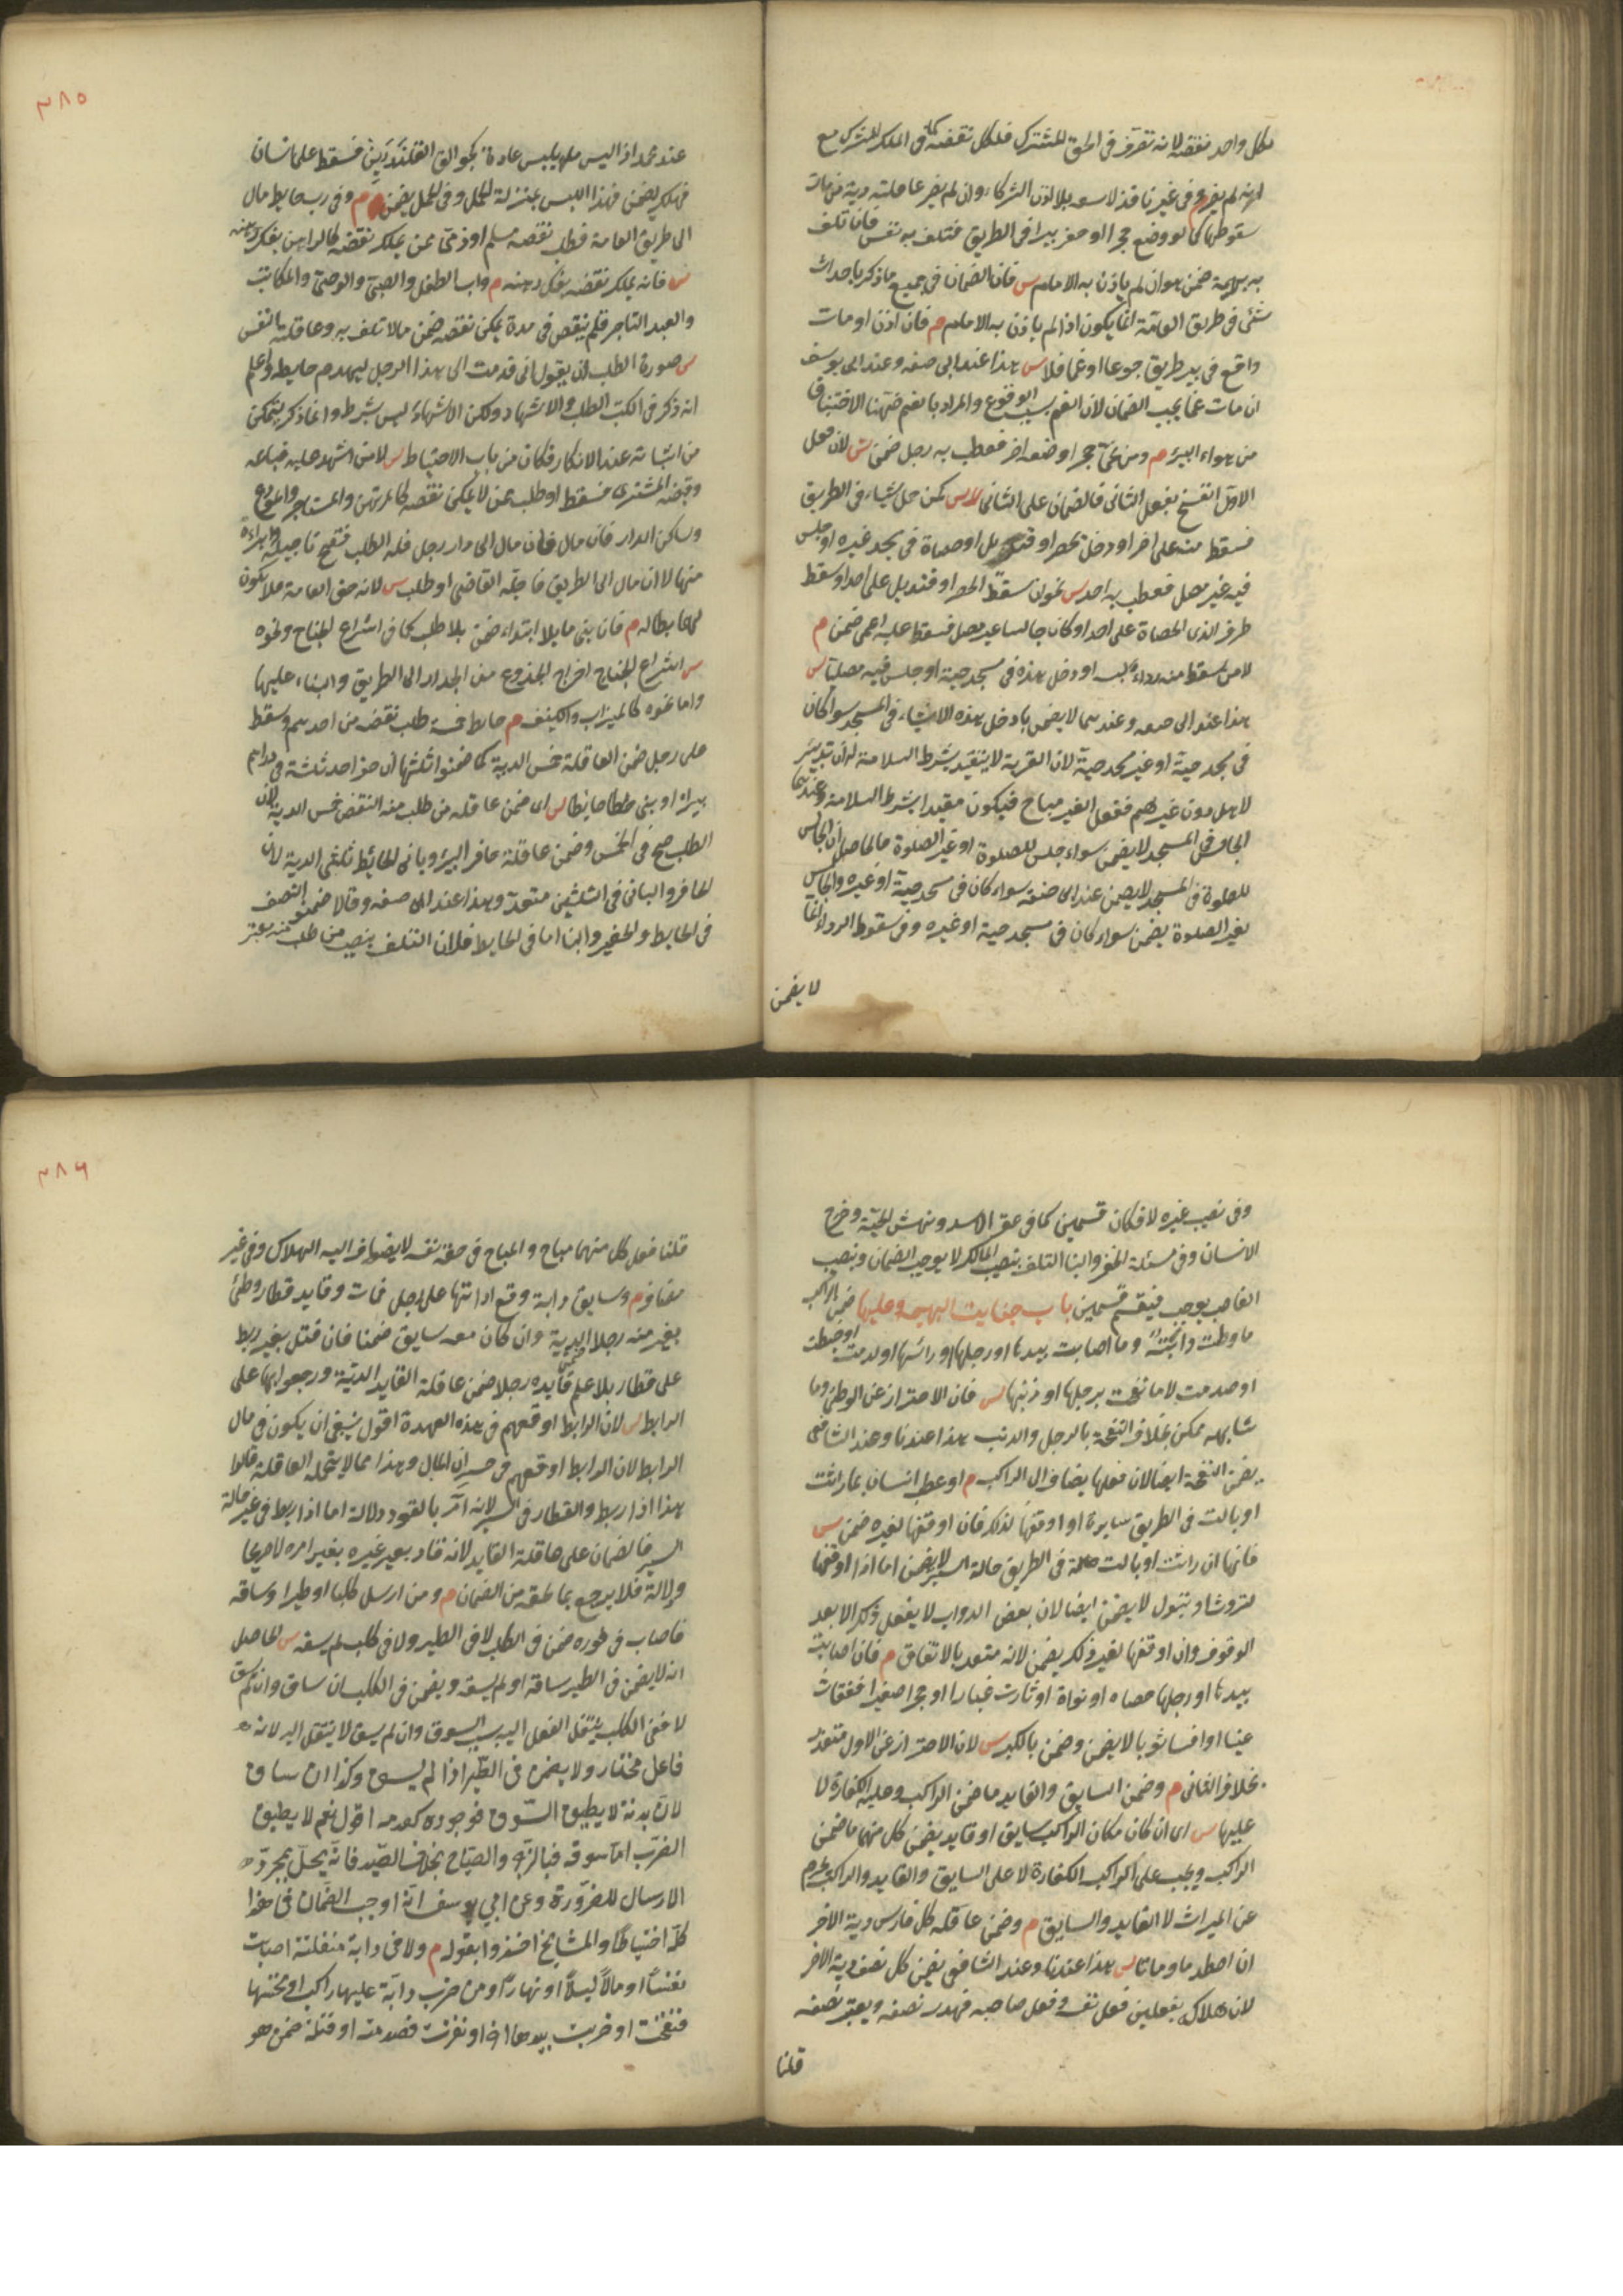 لكل واحد نقضه لانه تصرف فى الحق المشترك فلكل نقضه كما فى الملك المشترك مع
انه لم يضر م وفى غير نافذ لا يسعه بلا اذن الشركاء وان لم يضر عاقلته دية من مات
بسقوطها كما لو وضع حجرا او حفر بيرا فى الطريق فتلف به نفس فان تلف
به بهيمة ضمن هو ان لم ياذن به الامام س فان الضمان فى جميع ما ذكر باحداث
شئ فى طريق العامة انما يكون اذا لم ياذن به الامام م فان اذن او مات
واقع فى بير طريق جوعا او غما فلا س هذا عند ابى حنيفه وعند ابى يوسف
ان مات غما يجب الضمان لان الغم بسبب الوقوع والمراد بالغم ههنا الاختناق
من هواء البئر م ومن نحى حجرا وضعه اخر فعطب به رجل ضمن س لان فعل
الاول انفسخ بفعل الثانى فالضمان على الثانى س كمن حمل شياء فى الطريق
فسقط منه على اخر او دخل بحصير او قنديل او حصاة فى مسجد غيره او جلس
فيه غير مصل فعطب به احد س نحو ان سقط الحصير او قنديل على احد او سقط
ظرف الذى الحصاة على احد او كان جالسا غير مصل فسقط عليه اعمى ضمن م
لا من سقط منه رداء لبسه او دخل هذه فى مسجد حيه او جلس فيه مصليا س
هذا عند ابى حنيفه وعندهما لا يضمن بادخل هذه الاشياء فى المسجد سواء كان
فى مسجد حيه او غير مسجد حيه لان القربة لا يتقيد بشرط السلامة له ان تدبير
لاهل دون غيرهم ففعل الغير مباح فيكون مقيدا بشرط السلامة وعندهما
الجالس فى المسجد لا يضمن سواء جلس للصلوة او غير الصلوة فالحاصل ان الجالس
للصلوة فى المسجد لا يضمن عند ابى حنيفه سواء كان فى مسجد حيه او غيره والجالس
لغير الصلوة يضمن سواء كان فى مسجد حيه او غيره وفى سقوط الرداء انما
لا يضمن
٣٨٥
عند محمد اذا لبس ما يلبس عادة فسقط على انسان
فهلك يضمن فهذا اللبس بمنزلة الحمل وفى الحمل يضمن م وفى رب حايط مال
الى طريق العامة فطلب نقضه مسلم او ذمى ممن يملك نقضه كالراهن بفك رهنه
س فانه يملك نقضه بفك رهنه م واب الطفل والصبى والوصى والمكاتب
والعبد التاجر فلم ينقض فى مدة يمكن نقضه ضمن مالا تلف به وعاقلته النفس
س صورة الطلب ان يقول انى قدمت الى هذا الرجل ليهدم حايطه واعلم
انه ذكر فى الكتب الطلب والاشهاد ولكن الاشهاد ليس بشرط وانما ذكر ليتمكن
من اثباته عند الانكار فكان من باب الاحتياط س لا من اشهد عليه فباعه
وقبضه المشترى فسقط او طلب ممن لا يمكن نقضه كالمرتهن والمستاجر والمودع
وساكن الدار فان مال فان مال الى دار رجل فله الطلب فتصح تاجيله وابراءه
منها لا ان مال الى الطريق فاجله القاضى او طلب س لانه حق العامة فلا يكون
لهما ابطاله م فان بنى مايلا ابتداء ضمن بلا طلب كما فى اشراع الجناح ونحوه
س اشراع الجناح اخراج الجذوع من الجدار الى الطريق والبناء عليها
واما نحوه كالميزاب والكنيف م حايط خمسة طلب نقضه من احدهم وسقط
على رجل ضمن العاقلة خمس الدية كما ضمنوا ثلثيها ان حفر احد ثلثة فى دارهم
بيرا او بنى حايطا س اى ضمن عاقله من طلب منه النقض خمس الدية لان
الطلب صح فى الخمس وضمن عاقلة حافر البئر وبانى الحائط ثلثى الدية لان
الحافر والبانى فى الثلثين متعد وهذا عند ابى حنيفه وقالا ضمنوا النصف
فى الحايط والحفير والبنا اما فى الحايط فلان التلف بنصيب من طلب منه معتبر
وفى نصيب غيره لا فكان قسمين كما فى عقر الاسد ونهش الحية وجرح
الانسان وفى مسئلة الحفر والبنا التلف بنصيب المالك لا يوجب الضمان وبنصيب
الغاصب يوجب فيقسم قسمين باب جنايت البهيمه وعليها ضمن الراكب
ما وطئت دابته وما اصابت بيدها او رجلها او رائسها او كدمت او خبطت
او صدمت لا ما نفحت برجلها او ذنبها س فان الاحتراز عن الوطئ وما
شابهه ممكن بخلاف النفحة بالرجل والذنب هذا عندنا وعند الشافعى
يضمن النفحة ايضا لان فعلها يضاف الى الراكب م او عطب انسان بما راثت
او بالت فى الطريق سايرة او اوقفها لذلك فان اوقفها لغيره ضمن س
فانها ان راثت او بالت فى الطريق حالة السير لا يضمن اما اذا اوقفها
لتروث او تبول لا يضمن ايضا لان بعض الدواب لا يفعل ذلك الا بعد
الوقوف وان اوقفها لغير ذلك يضمن لانه متعد بالاتفاق م فان اصابت
بيدها او رجلها حصاه او نواة او ثارت غبارا او حجرا صغيرا ففقات
عينا او افسد ثوبا لا يضمن وضمن بالكبير س لان الاحتراز عن الاول متعذر
بخلاف الثانى م وضمن السايق والقايد ما ضمن الراكب وعليه الكفارة لا
عليهما س اى ان كان مكان الراكب سايق او قايد يضمن كل منهما ما ضمن
الراكب ويجب على الراكب الكفارة لا على السايق والقايد والراكب يحرم
عن الميراث لا القايد والسايق م وضمن عاقله كل فارس دية الاخر
ان اصطدما وماتا س هذا عندنا وعند الشافعى يضمن كل نصف دية الاخر
لان هلاكه بفعلين فعل نفسه وفعل صاحبه فهدر نصفه ويعتبر نصفه
قلنا
٣٨٦
قلنا فعل كل منهما مباح والمباح فى حق نفسه لا يضاف اليه الهلاك وفى غير
مضاف م وسايق دابة وقع اداتها على رجل فمات وقايد قطار وطئ
بعير منه رجلا الدية وان كان معه سايق ضمنا فان قتل بعير ربط
على قطار بلا علم قايده رجلا ضمن عاقلة القايد الدية ورجعوا بها على
الرابط س لان الرابط اوقعهم فى هذه العهدة اقول ينبغى ان يكون فى مال
الرابط لان الرابط اوقعهم فى خسران المال وهذا مما لا يتحمله العاقلة قالوا
هذا اذا ربط والقطار فى السير لانه آمر بالقود دلالة اما اذا ربط فى غير حالة
السير فالضمان على عاقلة القايد لانه قاد بعير غيره بغير امره لا صريحا
ولا دلالة فلا يرجع بما لحقه من الضمان م ومن ارسل كلبا او طيرا وساقه
فاصاب فى فوره ضمن فى الكلب لا فى الطير ولا فى كلب لم يسقه س الحاصل
انه لا يضمن فى الطير ساقه او لم يسقه ويضمن فى الكلب ان ساق وان لم يسق
لا ففى الكلب ينتقل الفعل اليه بسبب السوق وان لم يسق لا ينتقل اليه لانه
فاعل مختار ولا يضمن فى الطير اذا لم يسق وكذا ان ساق
لان بدنه لا يطيق السوق فوجوده كعدمه اقول نعم لا يطيق
الضرب اما سوقه فبالزجر والصياح بخلاف الصيد فانه يحل بمجرد
الارسال للضرورة وعن ابي يوسف انه اوجب الضمان فى هذا
كله احتياطا والمشايخ اخذوا بقوله م ولا فى دابة منفلتة اصابت
نفسا او مالا ليلا او نهارا ومن ضرب دابة عليها راكب او نخسها
فنفحت او ضربت بيدها او نفرت فصدمته او قتلته ضمن هو